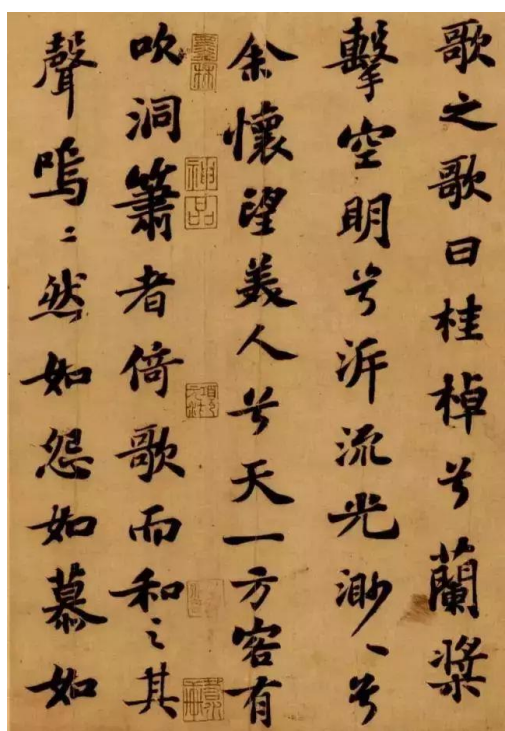 歌之歌曰桂棹兮蘭槳
擊空明兮泝流光渺〻兮
余懷望美人兮天一方客有
吹洞簫者倚歌而和之其
聲嗚〻然如怨如慕如
神品